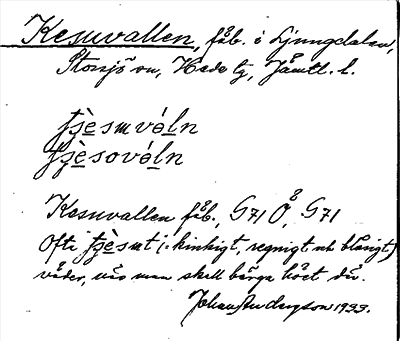 Kesuvallen, fäb. i Ljungdalen,
Storsjö sn, Hede tg, Jämtl. l.
fjèsmvéln
fjèsovéln
Kesuvallen fäb., G71 Ö, G71
Ofta fjèsmt (: kinkigt, regnigt och blåsigt)
väder, när man skall bärga höet där.
Johan Anderzson 1933.